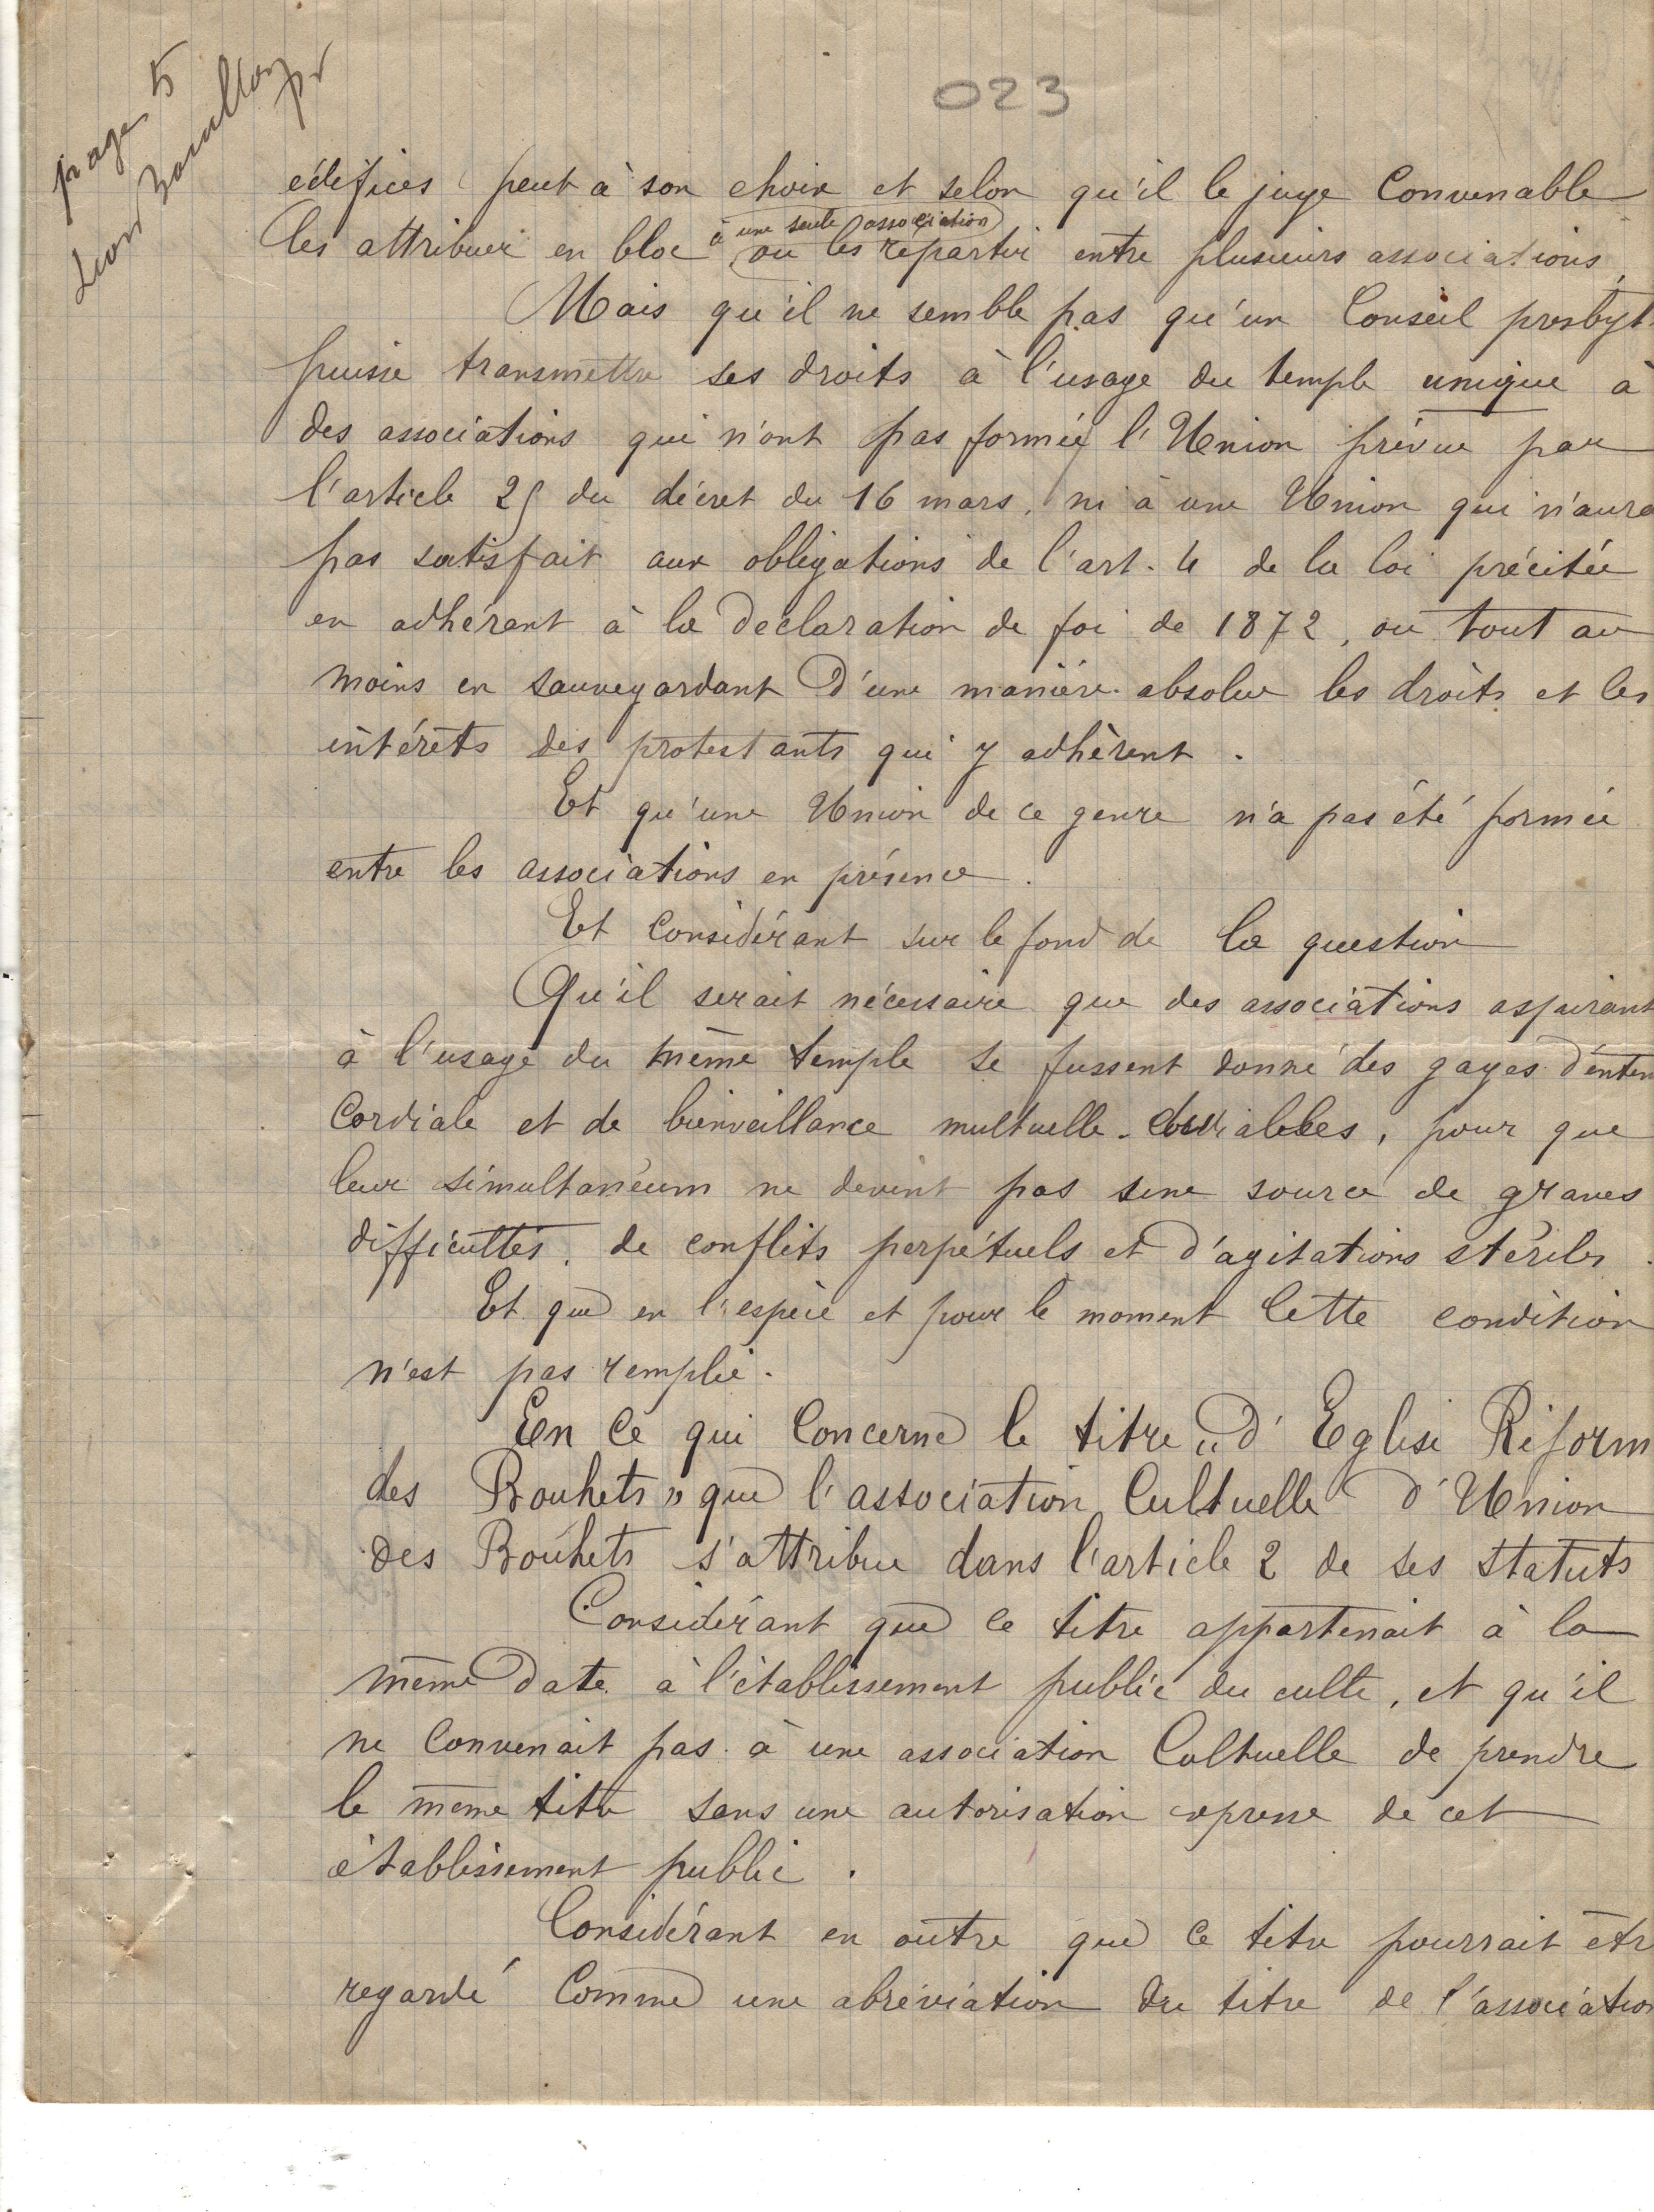 page 5
Léon
pr
023
édifices peut à son choix et selon qu'il le juge Convenable
à une seule association
les attribuer en bloc ou les répartir entre plusieurs associations,
Mais qu'il ne semble pas qu'un Conseil presbyt.
puisse transmettre ses droits à l'usage du temple unique à
des associations qui n'ont pas formée l'Union prévue par
l'article 25 du décret du 16 mars, ni à une Union qui n'aura
pas satisfait aux obligations de l'art. 4 de la loi précitée
en adhérant à la déclaration de foi de 1872, ou tout au
moins en sauvegardant d'une manière absolue les droits et les
intérêts des protestants qui y adhèrent.
Et qu'une Union de ce genre n'a pas été formée
entre les associations en présence.
Et Considérant sur le fond de la question
Qu'il serait nécessaire que des associations aspirant
à l'usage du même temple se fussent donné des gages d'enten
Cordiale et de bienveillance multuelle. , pour que
leur simultanéum ne devint pas une source de graves
difficultés, de conflits perpétuels et d'agitations stériles.
Et que en l'espèce et pour le moment Cette condition
n'est pas remplie.
En Ce qui Concerne le titre „d'Eglise Réform
des Bouhets" que l'association Cultuelle d'Union
des Bouhets s'attribue dans l'article 2 de ses statuts
Considérant que ce titre appartenait à la
même date à l'établissement public du culte, et qu'il
ne Convenait pas à une association Cultuelle de prendre
le même titre sans une autorisation expresse de cet
établissement public.
Considérant en outre que Ce titre pourrait êtr
regardé Comme une abréviation du titre de l'association